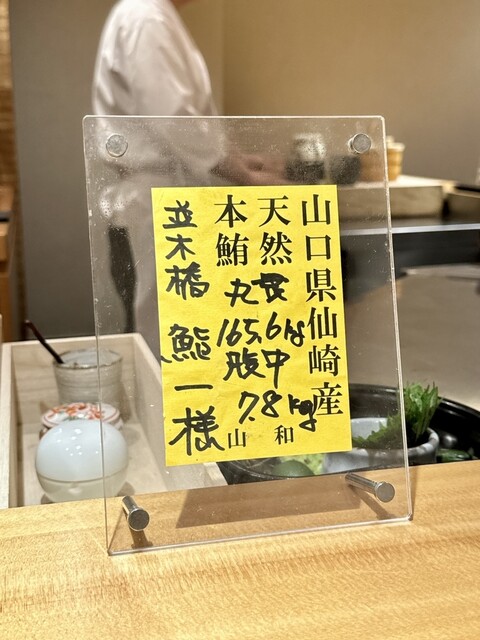 山口県仙崎産
天然
本鮪
丸
165.6kg
腹中
7.8kg
山和
並木橋 鮨一様